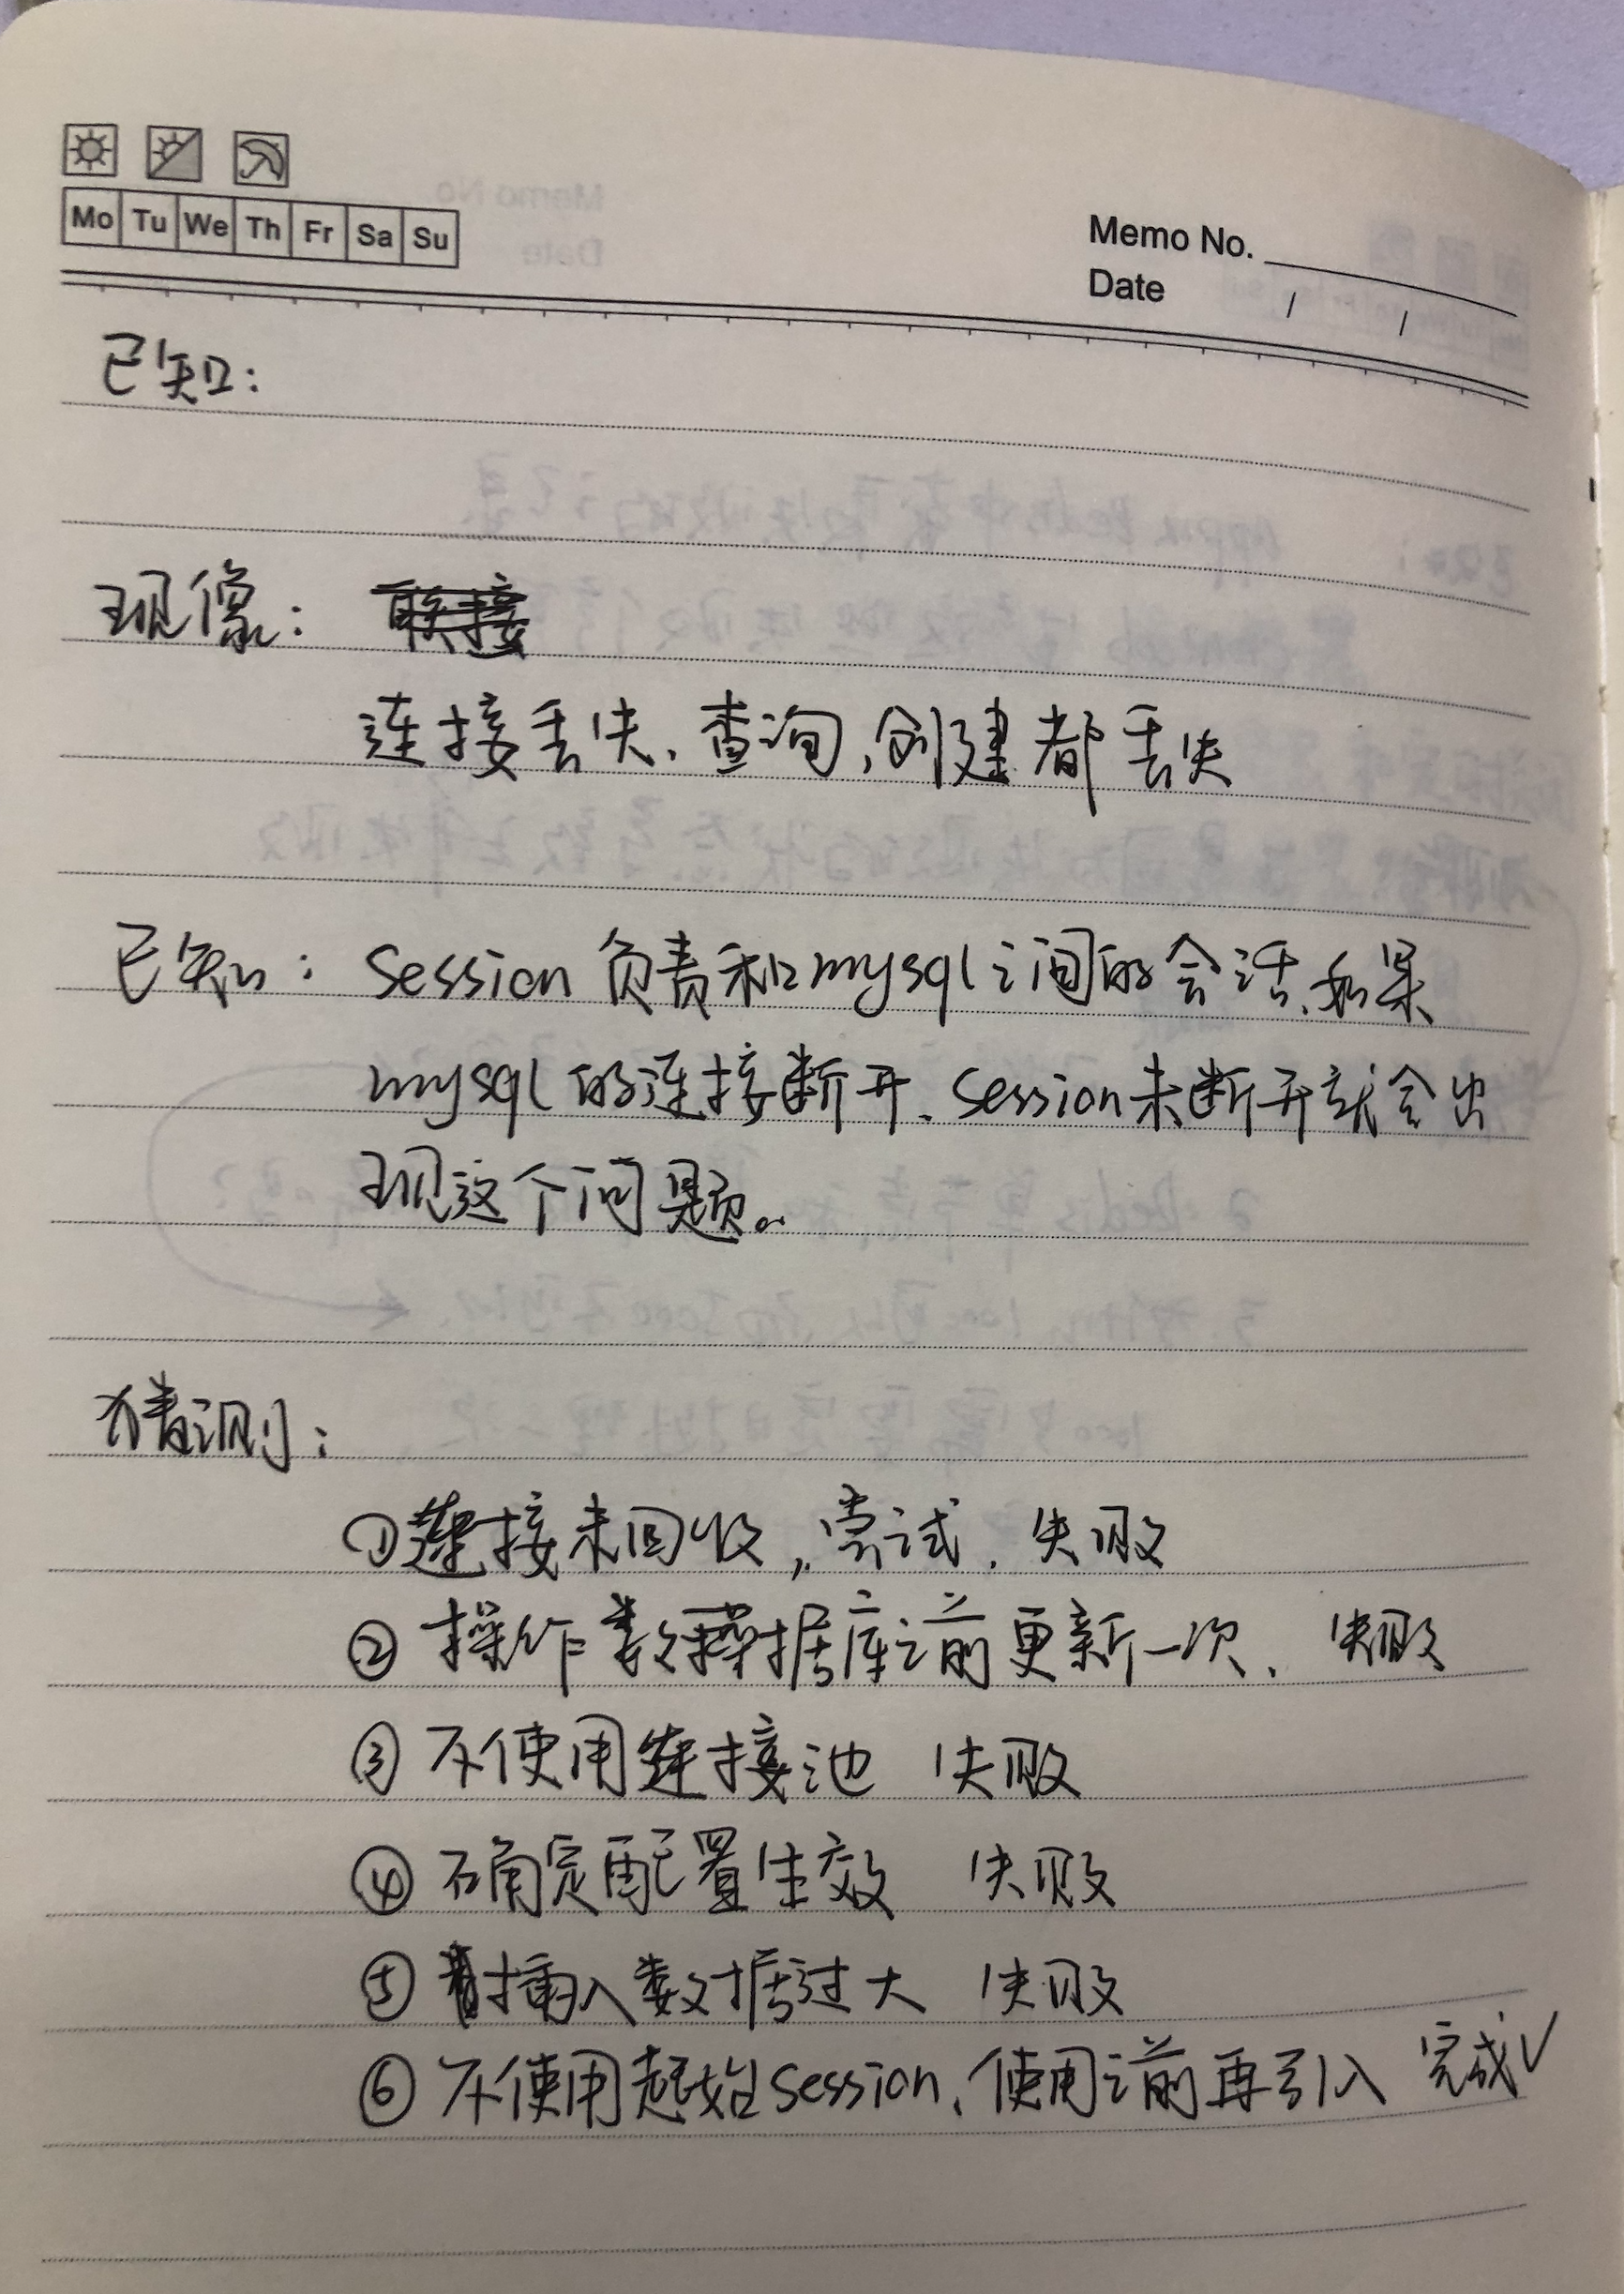 Mo Tu We Th Fr Sa Su
Memo No.
Date / /
已知:
现像:
连接丢失、查询,创建都丢失
已知: Session 负责和mysql之间的会话,如果
mysql的连接断开、Session未断开就会出
现这个问题。
猜测:
①连接未回收,尝试、失败
②操作数据库之前更新一次、失败
③不使用连接池 失败
④确定配置生效 失败
⑤插入数据过大 失败
⑥不使用起始session、使用之前再引入 完成✓